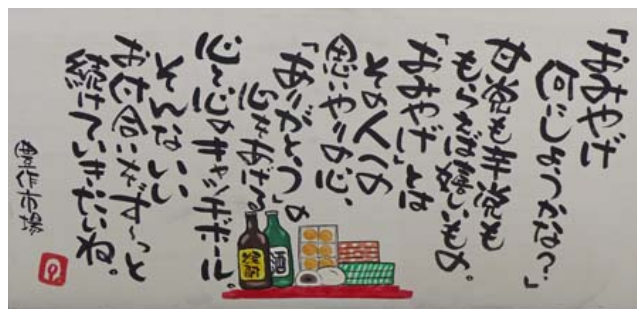 「おみやげ
何にしようかな?」
甘党も辛党も
もらえば嬉しいもの。
「おみやげ」とは
その人への
思いやりの心、
「ありがとう」の
心をあげる
心と心のキャッチボール。
そんないい
お付合いをず〜っと
続けていきたいね。
豊作市場
酒